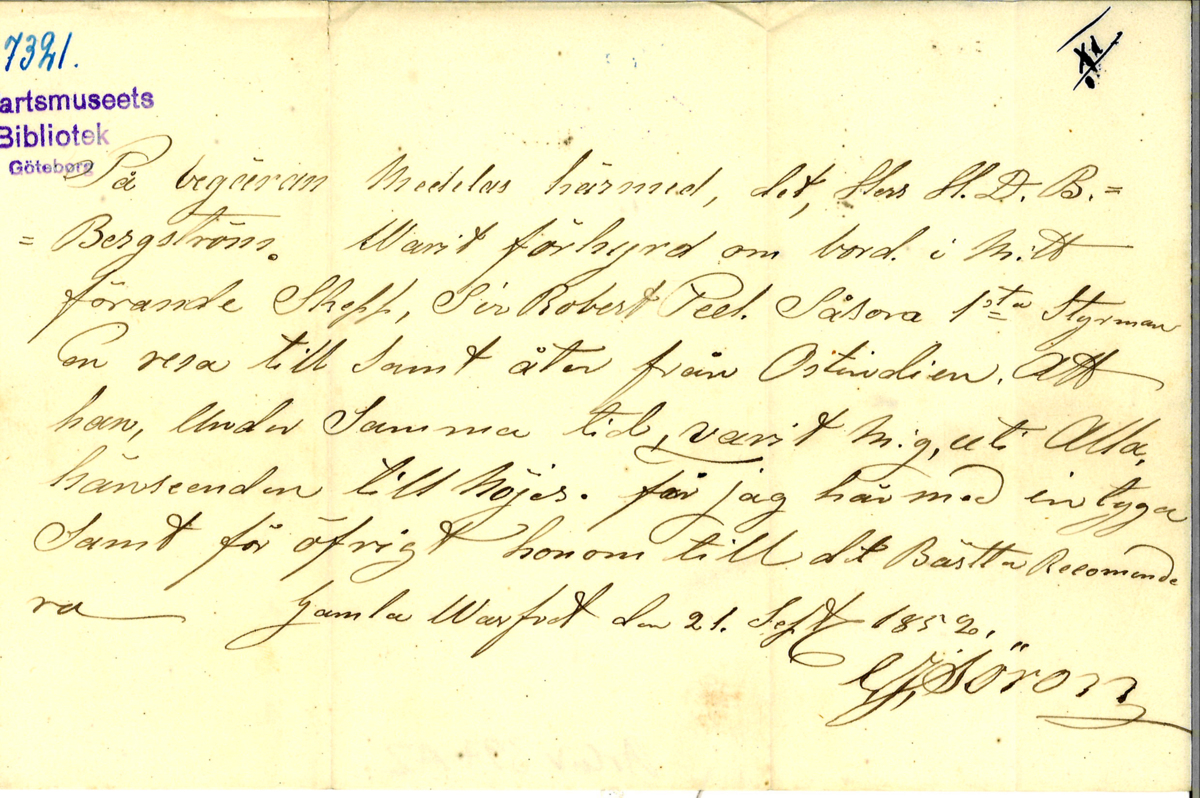 7321.
artsmuseets
Bibliotek
Göteborg
På begäran Medelas härmed, det, Herr H. D. B.=
= Bergström. Warit förhyrd om bord i Mitt
förande Skepp, Sir Robert Peel. Såsom 1sta Styrman
En resa till Samt åter från Ostindien. Att
han, Under Samma tid, varit Mig, uti Alla,
hänseenden till Nöjes. får jag härmed intyga
Samt för öfrigt honom till det Bästta Recomende
ra Gamla Warfvet den 21. Sept 1852.